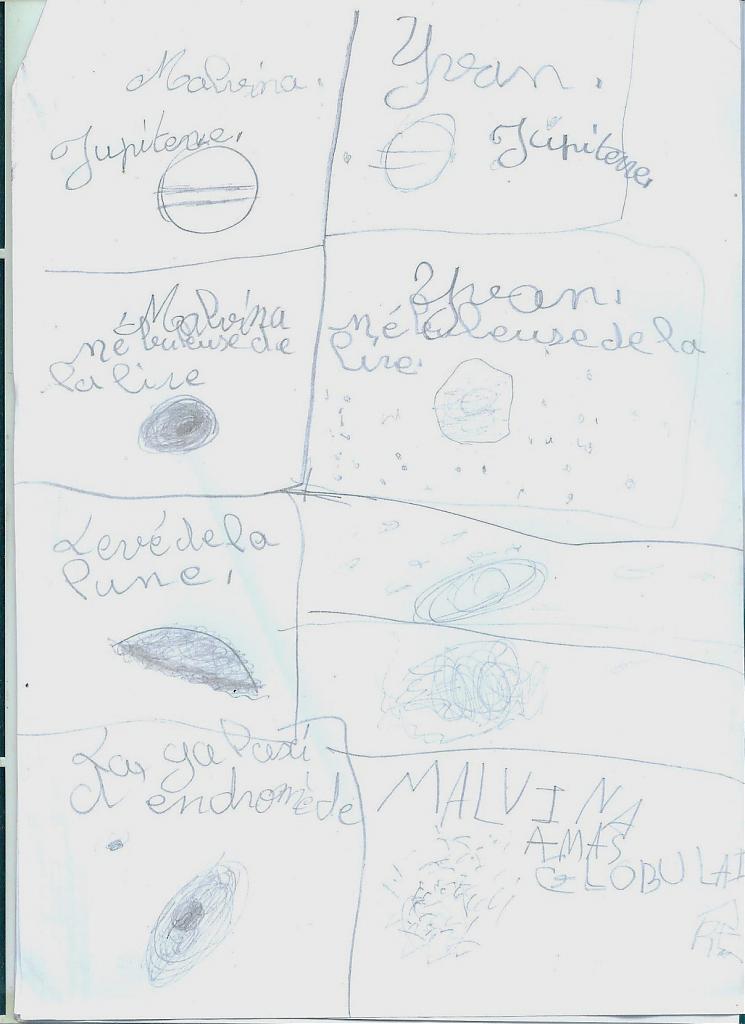 Malvina.
Jupitene.
Yvan.
Jupitene.
Malvina
Né buleuse de
la lire
Yvan.
Né buleuse de la
lire.
Levé de la
lune.
La galaxi
d'endromède
MALVINA
AMAS
GLOBULAI